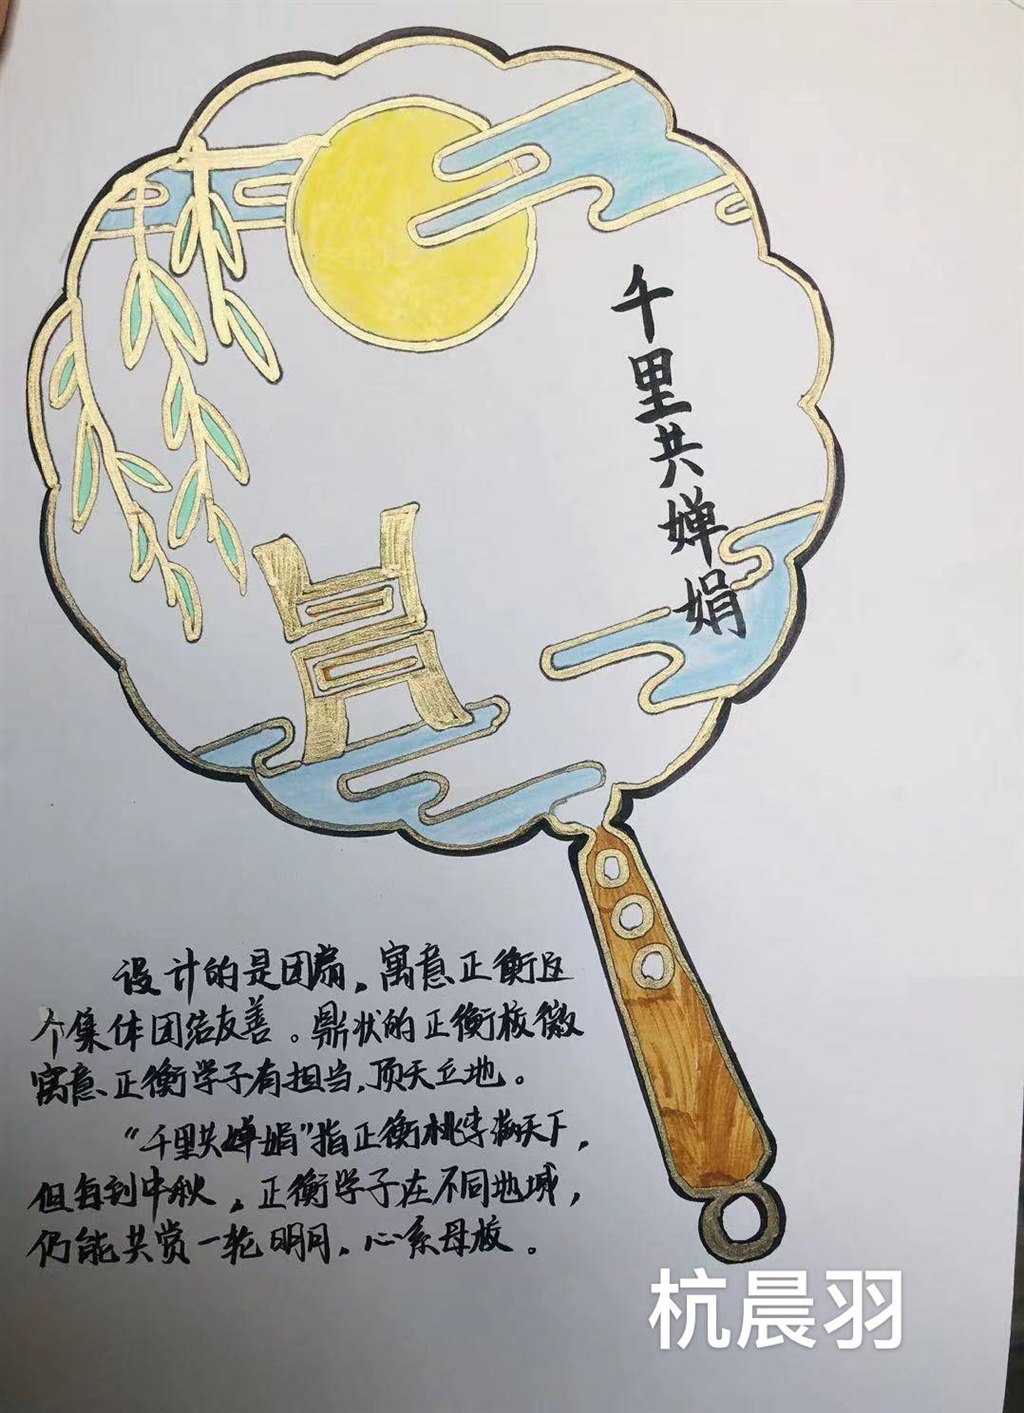 千里共婵娟
设计的是团扇，寓意正衡这
个集体团结友善。鼎状的正衡校徽
寓意正衡学子有担当，顶天立地。
“千里共婵娟”指正衡桃李满天下，
但每到中秋，正衡学子在不同地域，
仍能共赏一轮明月，心系母校。
杭晨羽